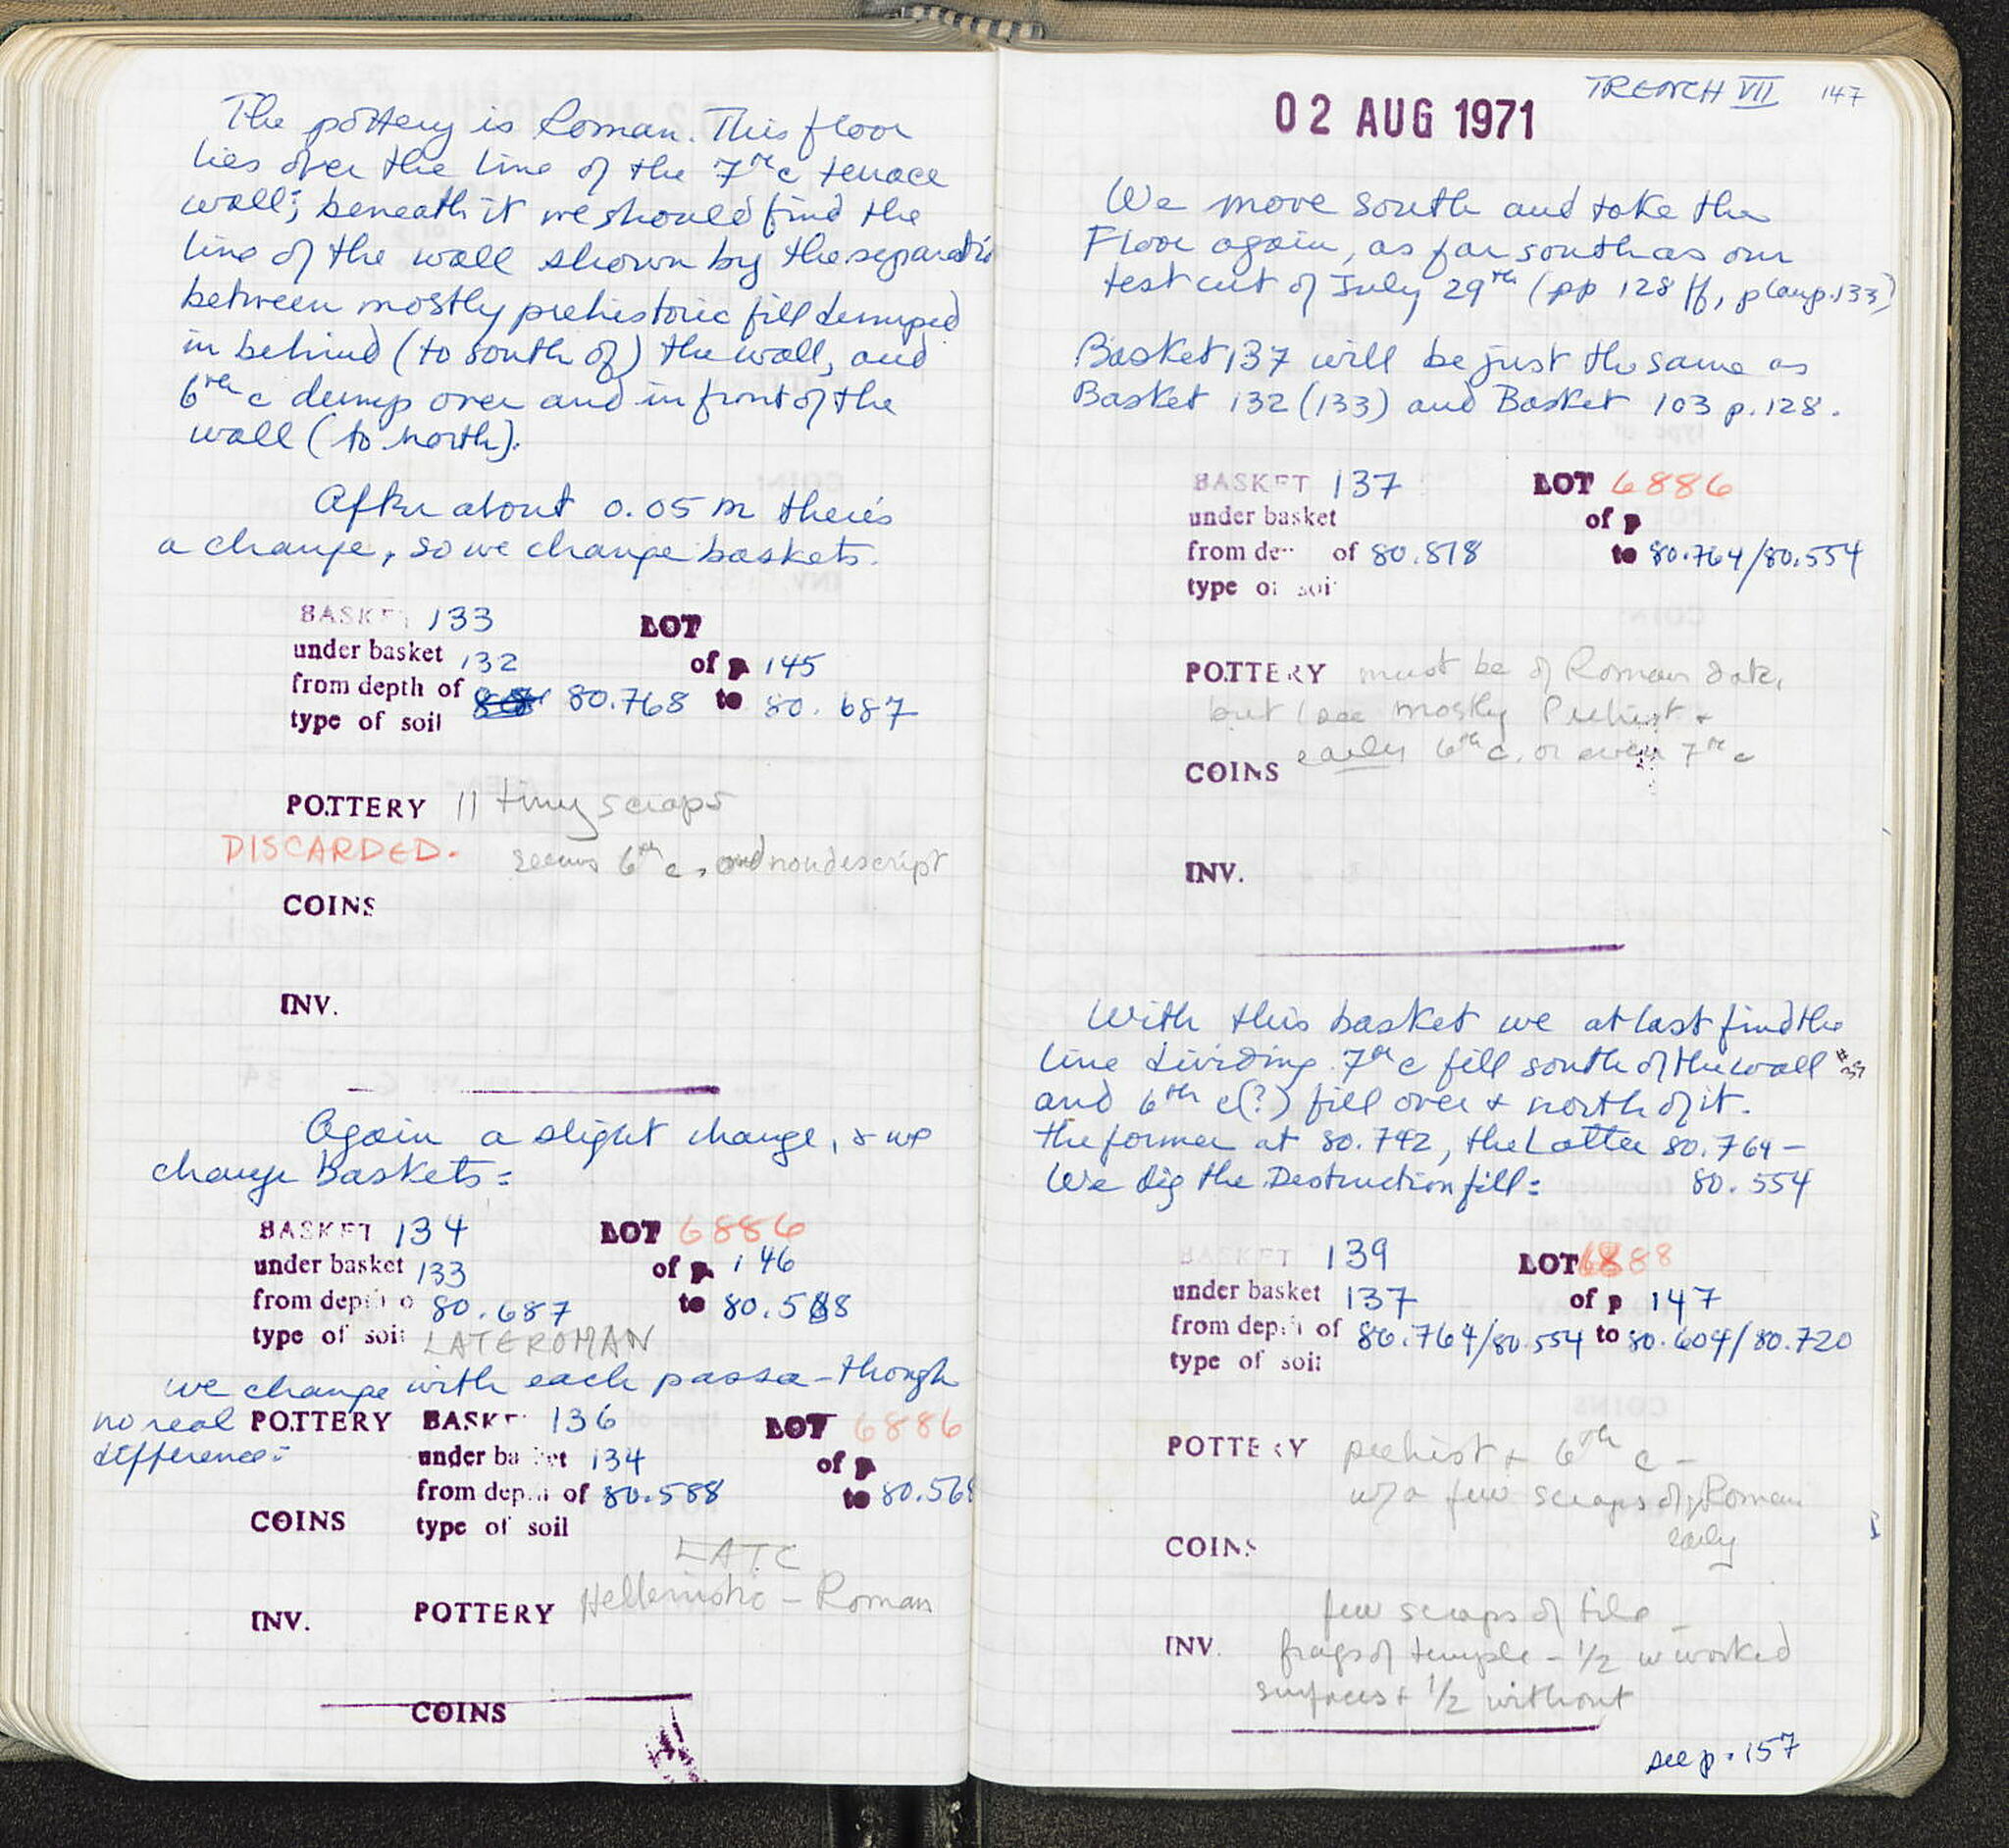 The pottery is Roman. This floor
lies over the line of the 7th c terrace
wall; beneath it we should find the
line of the wall shown by the separatio
between mostly prehistoric fill dumped
in behind (to south of) the wall, and
6th c dump over and in front of the
wall (to north).
After about 0.05 m there's
a change, so we change baskets.
BASKET 133 LOT
under basket 132 of p 145
from depth of 80.768 to 80.687
type of soil
POTTERY 11 tiny scraps
DISCARDED. seems 6th c, and nondescript
COINS
INV.
Again a slight change, & we
change Baskets:
BASKET 134 LOT 6886
under basket 133 of p. 146
from depth o 80.687 to 80.588
type of soil LATE ROMAN
we change with each passa - though
no real POTTERY BASKE 136 LOT 6886
difference: under basket 134 of p
from depth of 80.588 to 80.568
COINS type of soil
LATE
INV. POTTERY Hellenistic - Roman
COINS
02 AUG 1971 TRENCH VII 147
We move south and take the
Floor again, as far south as our
test cut of July 29th (pp 128 ff, plan p.133)
Basket 137 will be just the same as
Basket 132 (133) and Basket 103 p. 128.
BASKET 137 LOT 6886
under basket of p
from de of 80.818 to 80.764/80.554
type of soi
POTTERY must be of Roman date,
but I see mostly Prehist +
early 6th c, or even 7th c
COINS
INV.
With this basket we at last find the
line dividing 7th c fill south of the wall #37
and 6th c(?) fill over & north of it.
the former at 80.742, the Latter 80.764 -
We dig the Destruction fill: 80.554
BASKET 139 LOT 6888
under basket 137 of p 147
from depth of 80.764/80.554 to 80.604/80.720
type of soil
POTTERY prehist + 6th c -
w/ a few scraps of Roman
early
COINS
few scraps of tile
INV. frags of temple - 1/2 w worked
surfaces + 1/2 without
see p. 157